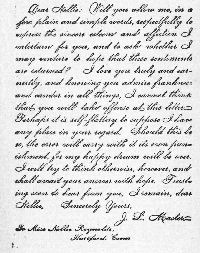 Dear Nellie: Will you allow me, in a
few plain and simple words, respectfully to
express the sincere esteem and affection I
entertain for you, and to ask whether I
may venture to hope that these sentiments
are returned? I love you truly and ear-
nestly, and knowing you admire frankness
and candor in all things, I cannot think
that you will take offense at this letter.
Perhaps it is self-flattery to suppose I have
any place in your regard. Should this be
so, the error will carry with it its own pun-
ishment, for my happy dream will be over.
I will try to think otherwise, however, and
shall await your answer with hope. Trust-
ing soon to hear from you, I remain, dear
Nellie, Sincerely Yours,
J. L.
To Miss Nellie Reynolds,
Hartford, Conn.